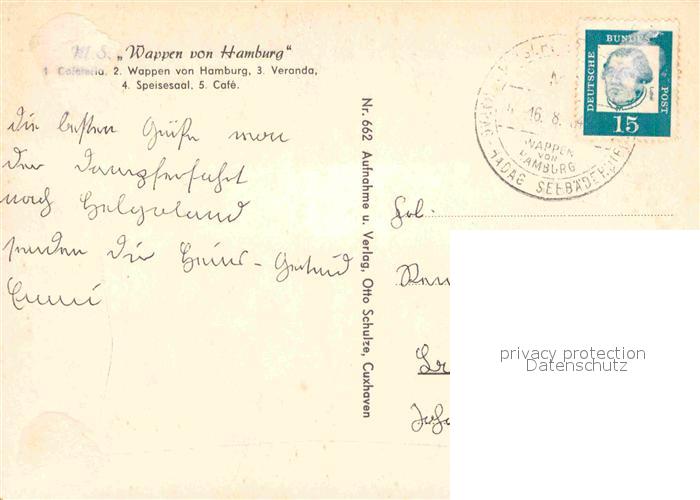 M.S. „Wappen von Hamburg"
1. Cafeteria. 2. Wappen von Hamburg, 3. Veranda,
4. Speisesaal, 5. Café.
die besten Grüße von
der Dampferfahrt
nach Helgoland
senden dir Heinz - Gertrud
Nr. 662 Aufnahme u. Verlag, Otto Schulze, Cuxhaven
16. 8.
WAPPEN
VON
HAMBURG
HADAG SEEBÄDER
DEUTSCHE
BUNDES
POST
15
privacy protection
Datenschutz